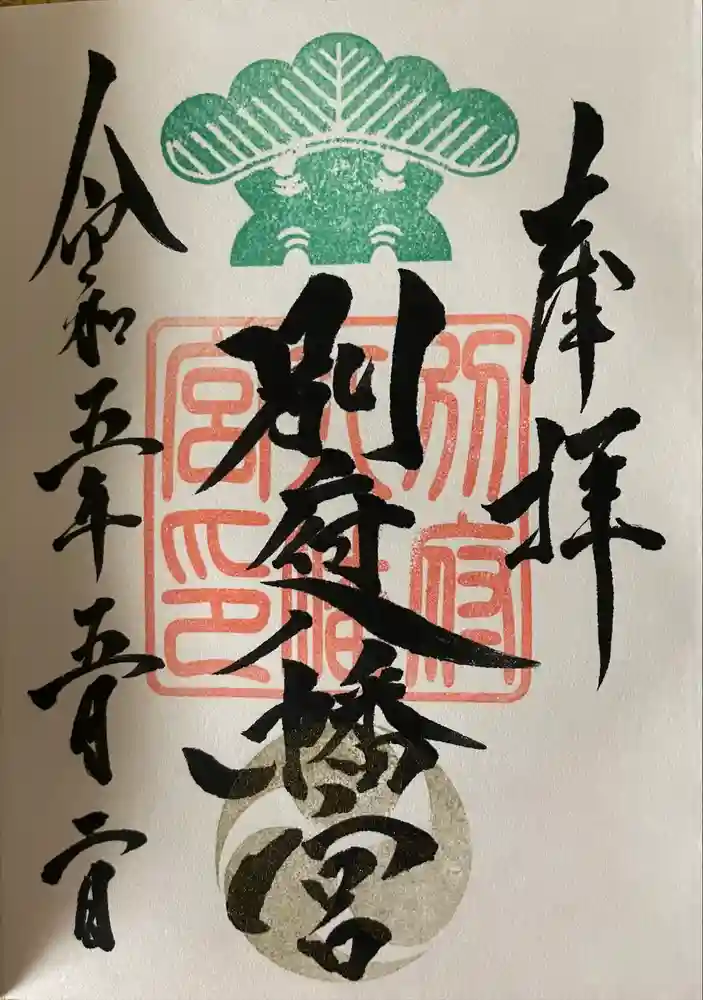 奉拝
別府八幡宮
別府八幡宮印
令和五年五月二日